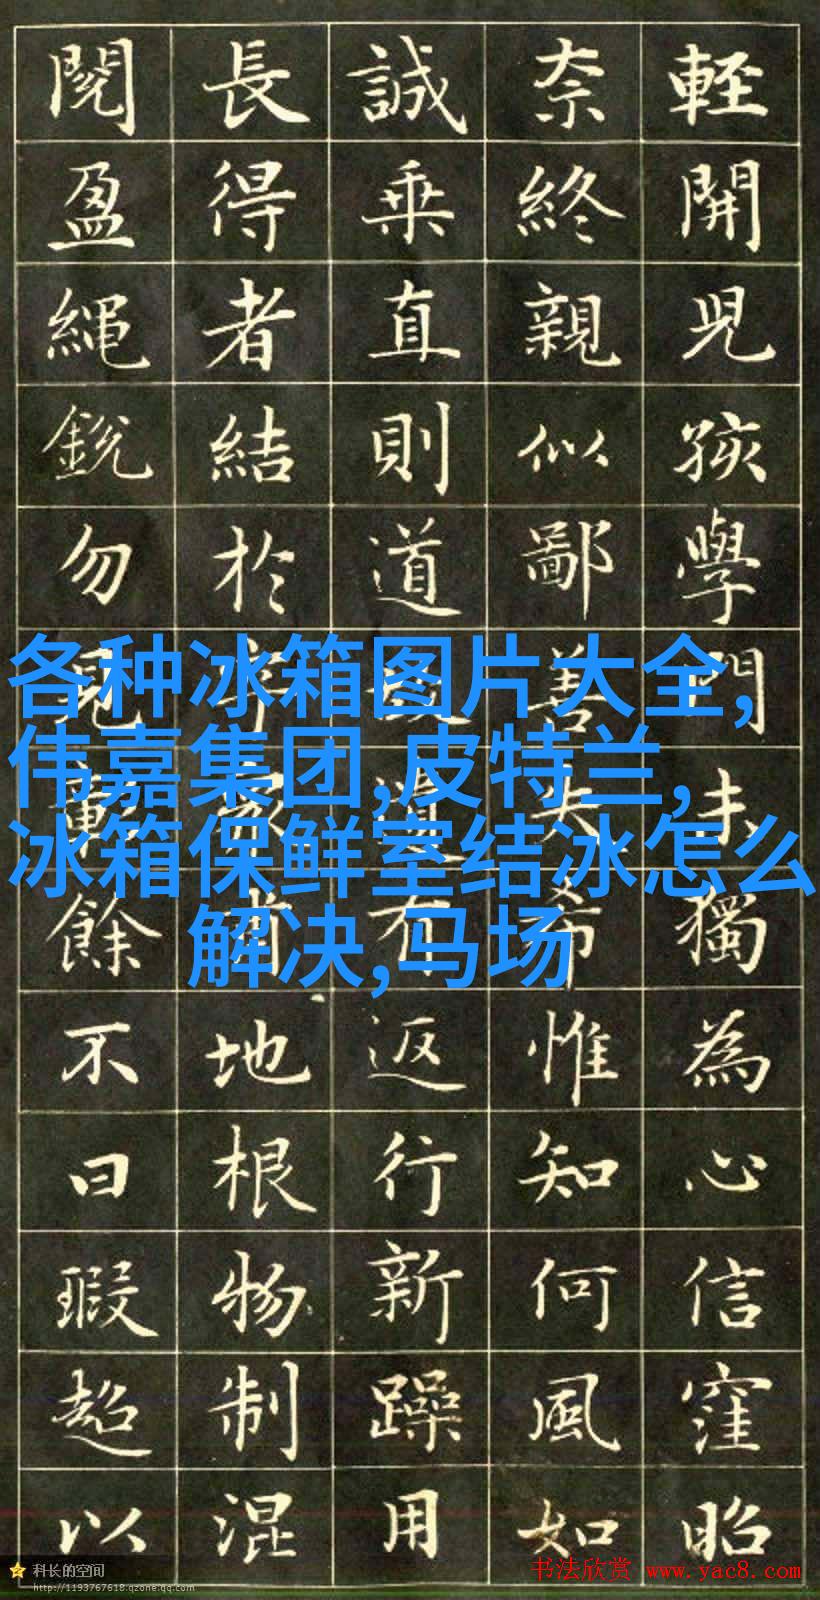 輊 奈 誠 長 閱
開 終 乘 得 盈
兒 親 直 者 繩
孩 似 則 結 銳
學 鄙 道 於 勿
門 善
各种冰箱图片大全,
伟嘉集团,皮特兰,
冰箱保鲜室结冰怎么
解决,马场
獨 希 有 餘
為 惟 返 地 不
心 知 行 根 曰
信 何 新 物 瑕
窪 風 躁 制 超
昭 如 用 混 以
科长的空间
http://1193767618.qzone.qq.com
书法欣赏 www.yac8.com